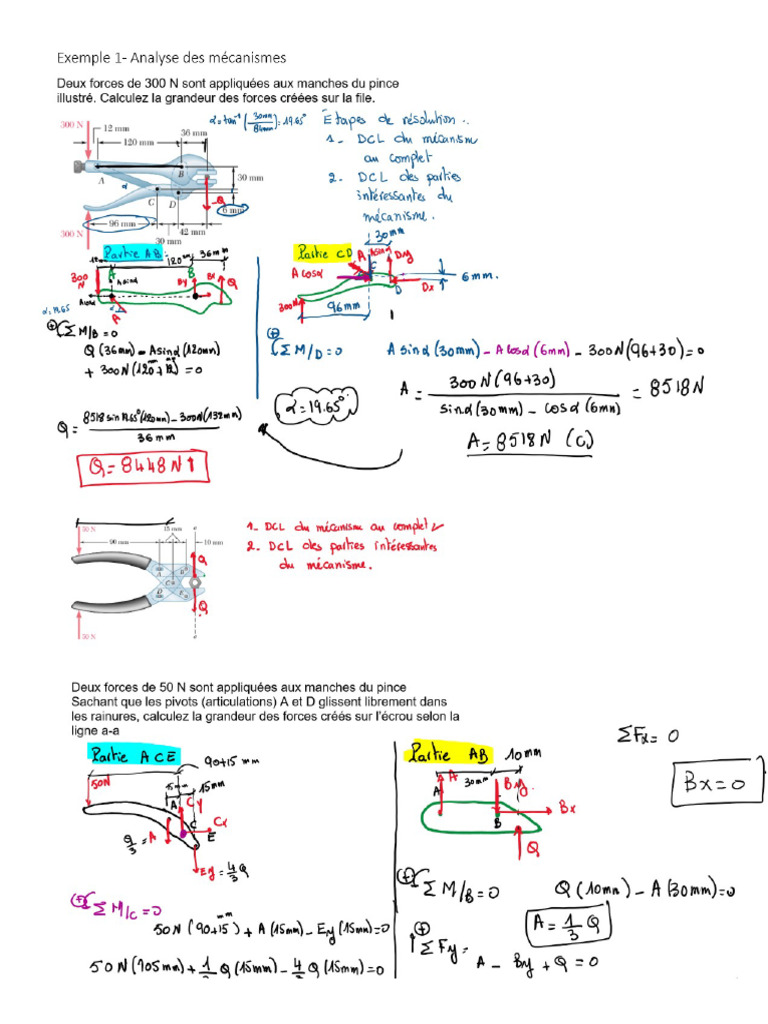 Exemple 1- Analyse des mécanismes
Deux forces de 300 N sont appliquées aux manches du pince
illustré. Calculez la grandeur des forces créées sur la file.
α=tan⁻¹(30mm/84mm)=19.65°
Étapes de résolution :
1- DCL du mécanisme
au complet
2. DCL des parties
intéressantes du
mécanisme.
300 N
12 mm
36 mm
120 mm
30 mm
A
B
α
C
D
Q
6 mm
96 mm
42 mm
300 N
30 mm
Partie AB
120mm
36mm
300
N
A
B
Asinα
By
Bx
Q
Acosα
α=19.65
A
Partie CD
30mm
A
Asinα
Dy
A cosα
C
6mm.
D
Dx
300N
96mm
ΣM/B=0
Q(36mm)-Asinα(120mm)
+ 300N(120+12)=0
ΣM/D=0
A sinα(30mm)-A cosα(6mm)-300N(96+30)=0
A = 300N(96+30) / sinα(30mm)-cosα(6mm) = 8518N
α=19.65°
A=8518N (C)
Q= 8518 sin 19.65°(120mm)-300N(132mm) / 36mm
Q=8448N↑
50 N
15 mm
a
90 mm
10 mm
A
B
C
D
E
Q
Q
50 N
a
1- DCL du mécanisme au complet ✓
2. DCL des parties intéressantes
du mécanisme.
Deux forces de 50 N sont appliquées aux manches du pince
Sachant que les pivots (articulations) A et D glissent librement dans
les rainures, calculez la grandeur des forces créés sur l'écrou selon la
ligne a-a
Partie ACE
90+15 mm
50N
15mm
15mm
A
Cy
C
Cx
Q/3 = A
E
Ey = 4/3 Q
ΣM/C=0
50N(90+15)mm + A(15mm) - Ey(15mm)=0
50N(105mm)+1/3 Q(15mm)-4/3 Q(15mm)=0
Partie AB
10mm
A
30mm
By
A
B
Bx
Q
ΣFx= 0
Bx=0
ΣM/B=0
Q(10mm)-A(30mm)=0
A=1/3 Q
ΣFy=
A - By + Q = 0